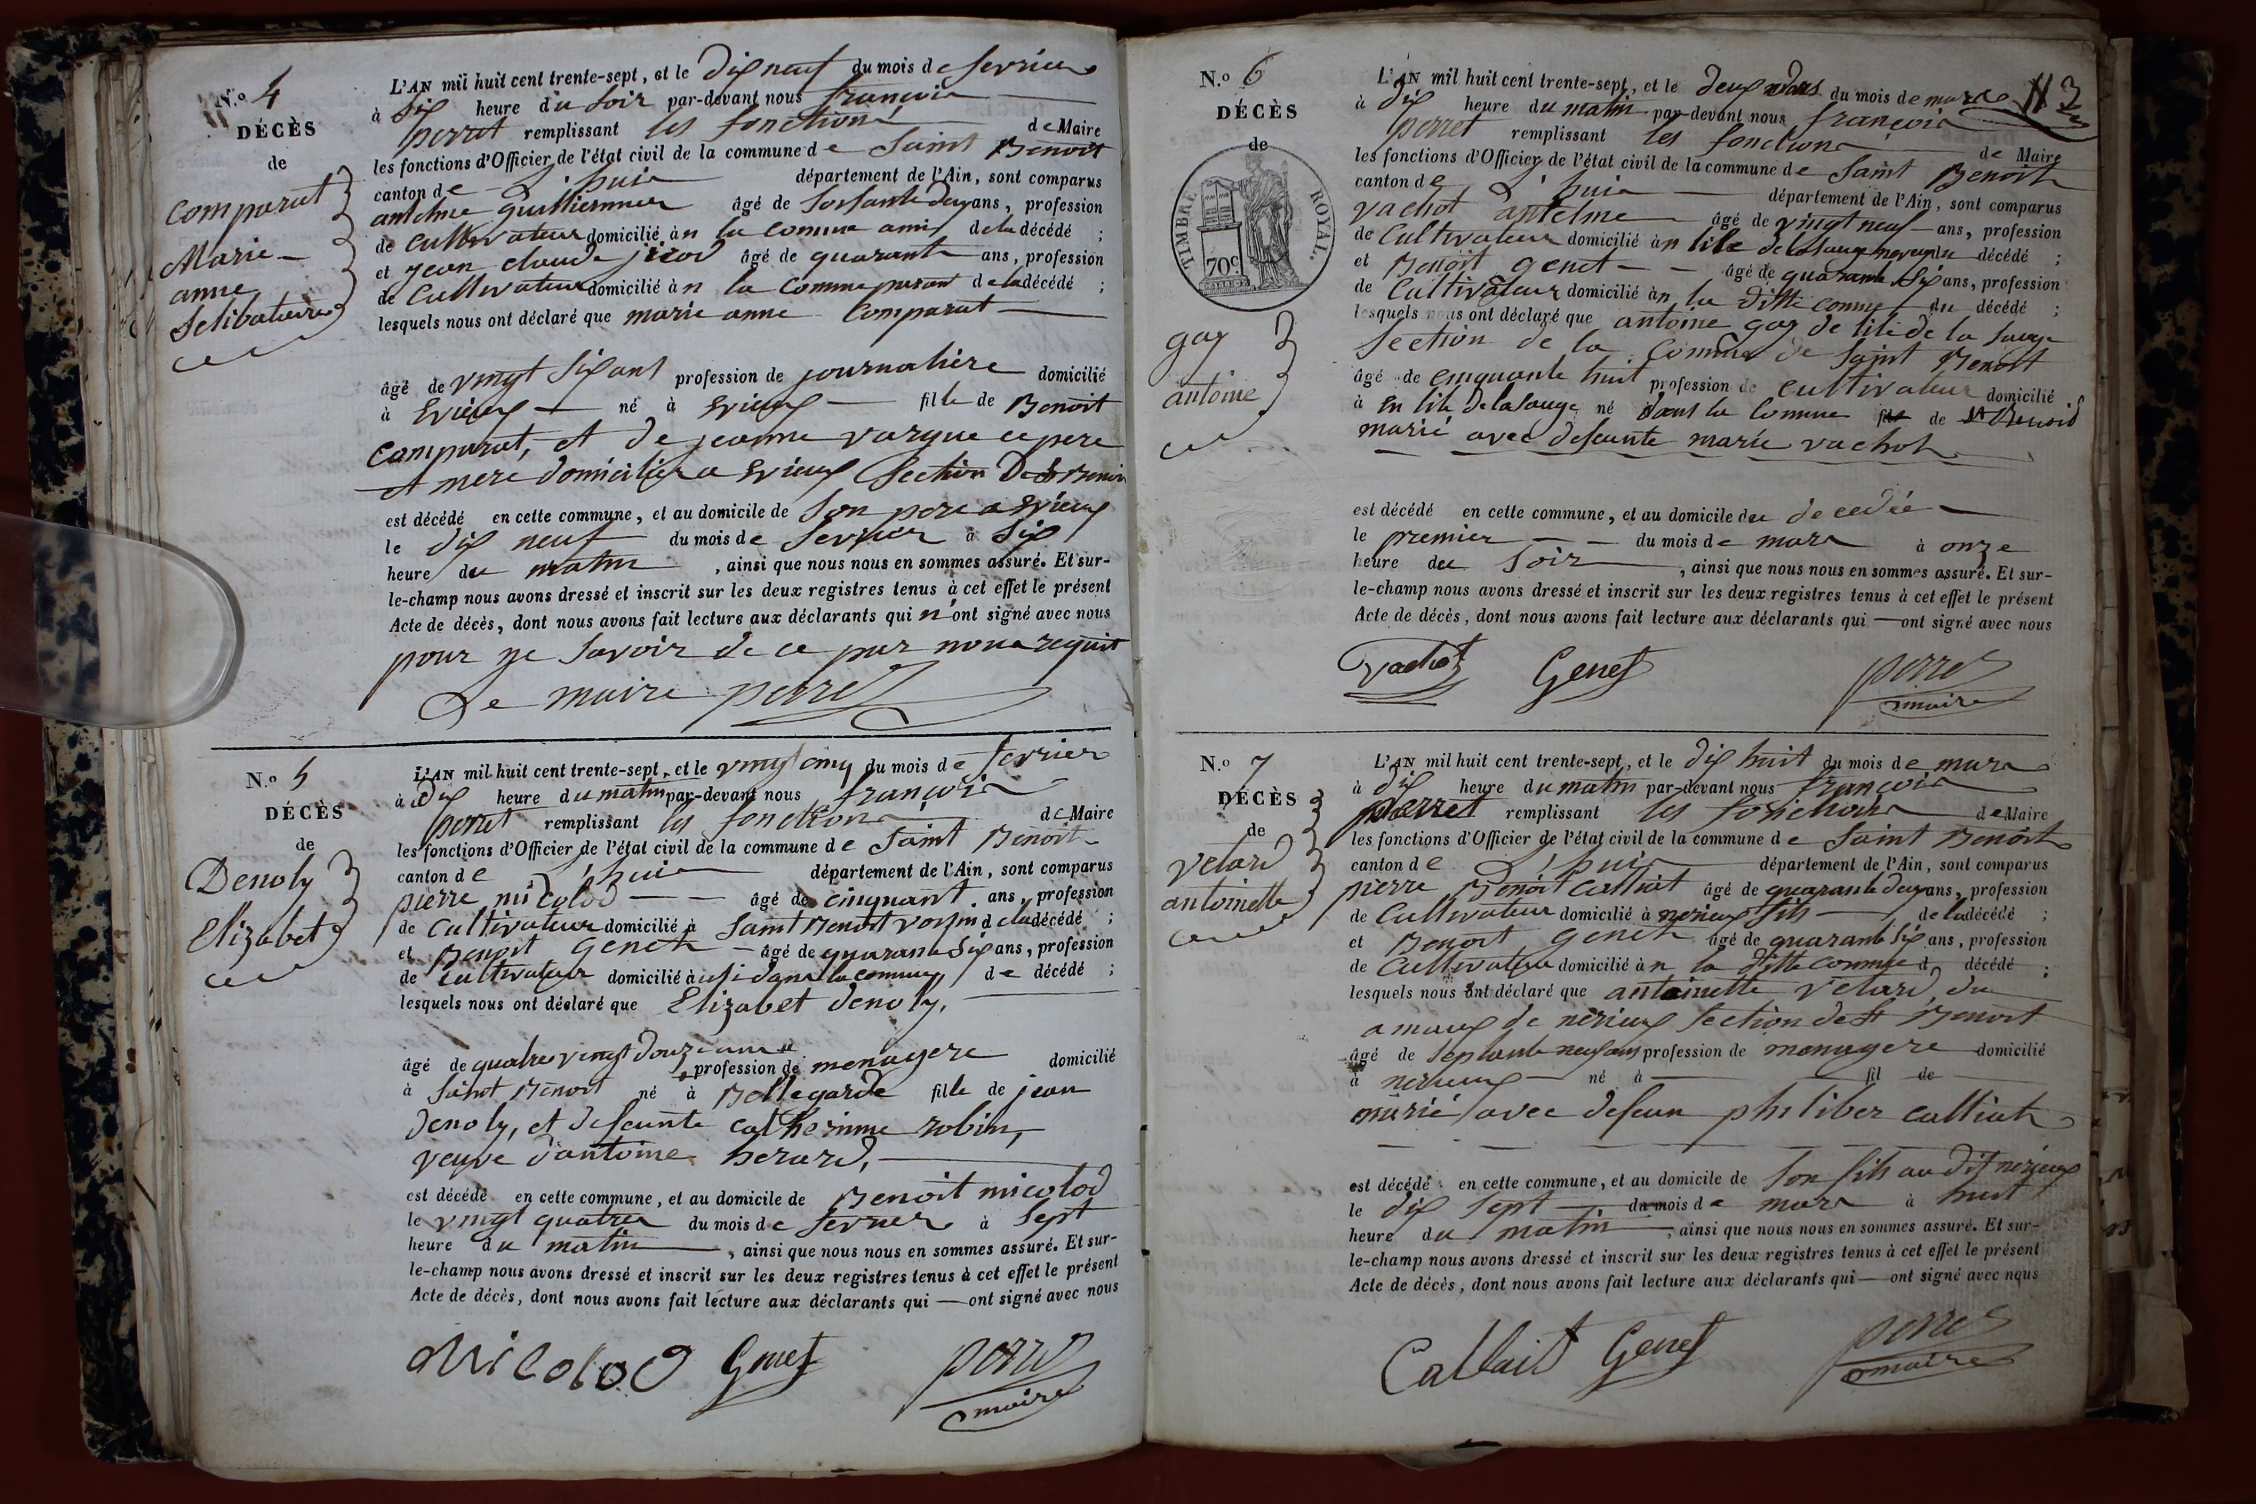 N.º 4
DÉCÈS
de
comparat
Marie
anne
Selibataire
L'AN mil huit cent trente-sept, et le dix neuf du mois de fevrier
à Six heure du Soir par-devant nous françois
perret remplissant les fonctions de Maire
les fonctions d'Officier de l'état civil de la commune de Saint Benoit
canton de L'huis département de l'Ain, sont comparus
antelme guilliermier âgé de Soissante deux ans, profession
de Cultivateur domicilié àn la comune ami de la décédé ;
et jean claude âgé de quarante ans, profession
de Cultivateur domicilié àn la Comme parant de la décédé ;
lesquels nous ont déclaré que marie anne Comparat
âgé de vingt Six ans profession de journalière domicilié
à Evieux né à Evieux fille de Benoit
comparat, et de jeanne vargue ce pere
et mere domicilier a Evieux Section De St Benoit
est décédé en cette commune, et au domicile de Son pere a Evieux
le dix neuf du mois de fevrier à Six
heure du matin, ainsi que nous nous en sommes assuré. Et sur-
le-champ nous avons dressé et inscrit sur les deux registres tenus à cet effet le présent
Acte de décès, dont nous avons fait lecture aux déclarants qui n'ont signé avec nous
pour ne Savoir de ce par nous requit
Le maire perret
N.º 5
DÉCÈS
de
Denoly
Elizabet
L'AN mil huit cent trente-sept, et le vingt cinq du mois de fevrier
à Dix heure du matin par-devant nous françois
perret remplissant les fonctions de Maire
les fonctions d'Officier de l'état civil de la commune de Saint Benoit
canton de L'huis département de l'Ain, sont comparus
pierre micolod âgé de cinquant ans, profession
de Cultivateur domicilié à Saint Benoit voisin de la décédé ;
et Benoit Genet âgé de quarante Six ans, profession
de Cultivateur domicilié à ausi dans la commune de décédé ;
lesquels nous ont déclaré que Elizabet denoly,
âgé de quatre vingt Douze ans profession de menagere domicilié
à Saint Benoit né à Bellegarde fille de jean
Denoly, et defeunte catherinne robin,
veuve d'antoine herard,
est décédé en cette commune, et au domicile de Benoit micolod
le vingt quatre du mois de fevrier à Sept
heure du matin, ainsi que nous nous en sommes assuré. Et sur-
le-champ nous avons dressé et inscrit sur les deux registres tenus à cet effet le présent
Acte de décès, dont nous avons fait lecture aux déclarants qui — ont signé avec nous
Micolod Genet perret
maire
N.º 6
DÉCÈS
de
TIMBRE ROYAL.
70c.
gay
antoine
L'AN mil huit cent trente-sept, et le deux mars du mois de mars
à Dix heure du matin par-devant nous françois
perret remplissant les fonctions de Maire
les fonctions d'Officier de l'état civil de la commune de Saint Benoit
canton de L'huis département de l'Ain, sont comparus
vachot antelme âgé de vingt neuf ans, profession
de Cultivateur domicilié àn lile de la Sauge décédé ;
et Benoit genet âgé de quarante Six ans, profession
de Cultivateur domicilié àn la ditte comune du décédé ;
lesquels nous ont déclaré que antoine gay de lile de la Sauge
Section de la Comune de Saint Benoit
âgé de cinquante huit profession de cultivateur domicilié
à en lile de la Sauge né dans la Comune de St Benoit
marié avec defeunte marie vachot
est décédé en cette commune, et au domicile du decedée
le premier du mois de mars à onze
heure du Soir, ainsi que nous nous en sommes assuré. Et sur-
le-champ nous avons dressé et inscrit sur les deux registres tenus à cet effet le présent
Acte de décès, dont nous avons fait lecture aux déclarants qui — ont signé avec nous
Vachot Genet perret
maire
N.º 7
DÉCÈS
de
velard
antoinette
L'AN mil huit cent trente-sept, et le dix huit du mois de mars
à Dix heure du matin par-devant nous françois
perret remplissant les fonctions de Maire
les fonctions d'Officier de l'état civil de la commune de Saint Benoit
canton de L'huis département de l'Ain, sont comparus
pierre Benoit Calliat âgé de quarante deux ans, profession
de Cultivateur domicilié à nerieux fils de la décédé ;
et Benoit genet âgé de quarante Six ans, profession
de Cultivateur domicilié àn la ditte comune d décédé ;
lesquels nous ont déclaré que antoinette velard du
amaux de nerieux Section de St Benoit
âgé de Septante neuf ans profession de menagere domicilié
à nerieux né à fil de
marié avec defeun philiber calliat
est décédé en cette commune, et au domicile de Son fils au dit nerieux
le dix Sept du mois de mars à huit
heure du matin, ainsi que nous nous en sommes assuré. Et sur-
le-champ nous avons dressé et inscrit sur les deux registres tenus à cet effet le présent
Acte de décès, dont nous avons fait lecture aux déclarants qui — ont signé avec nous
Calliait Genet perret
maire